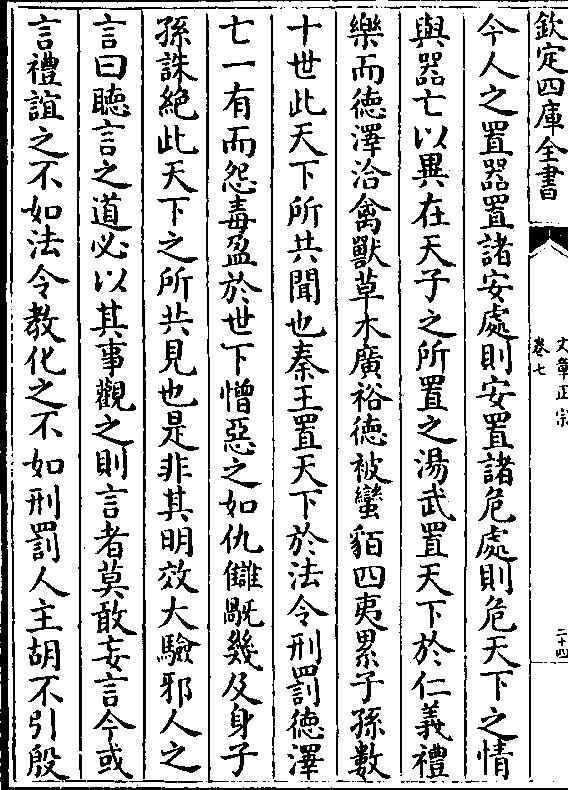 欽定四庫全書
文章正宗
卷七
二十四
今人之置器置諸安處則安置諸危處則危天下之情
與器亡以異在天子之所置之湯武置天下於仁義禮
樂而德澤洽禽獸草木廣裕德被蠻貊四夷累子孫數
十世此天下所共聞也秦王置天下於法令刑罰德澤
亡一有而怨毒盈於世下憎惡之如仇讎𠽾幾及身子
孫誅絶此天下之所共見也是非其明效大驗邪人之
言曰聴言之道必以其事觀之則言者莫敢妄言今或
言禮誼之不如法令教化之不如刑罰人主胡不引殷